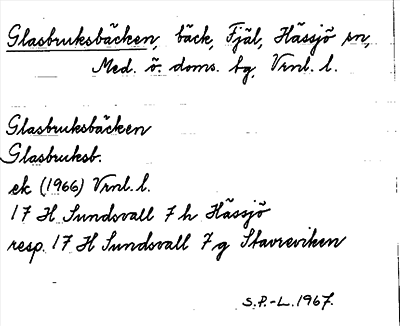 Glasbruksbäcken, bäck, Fjäl, Hässjö sn,
Med. ö. doms. bg, Vrnl. l.
Glasbruksbäcken
Glasbruksb.
ek (1966) Vrnl. l.
17 H Sundsvall 7 h Hässjö
resp. 17 H Sundsvall 7 g Stavreviken
S.P.-L. 1967.